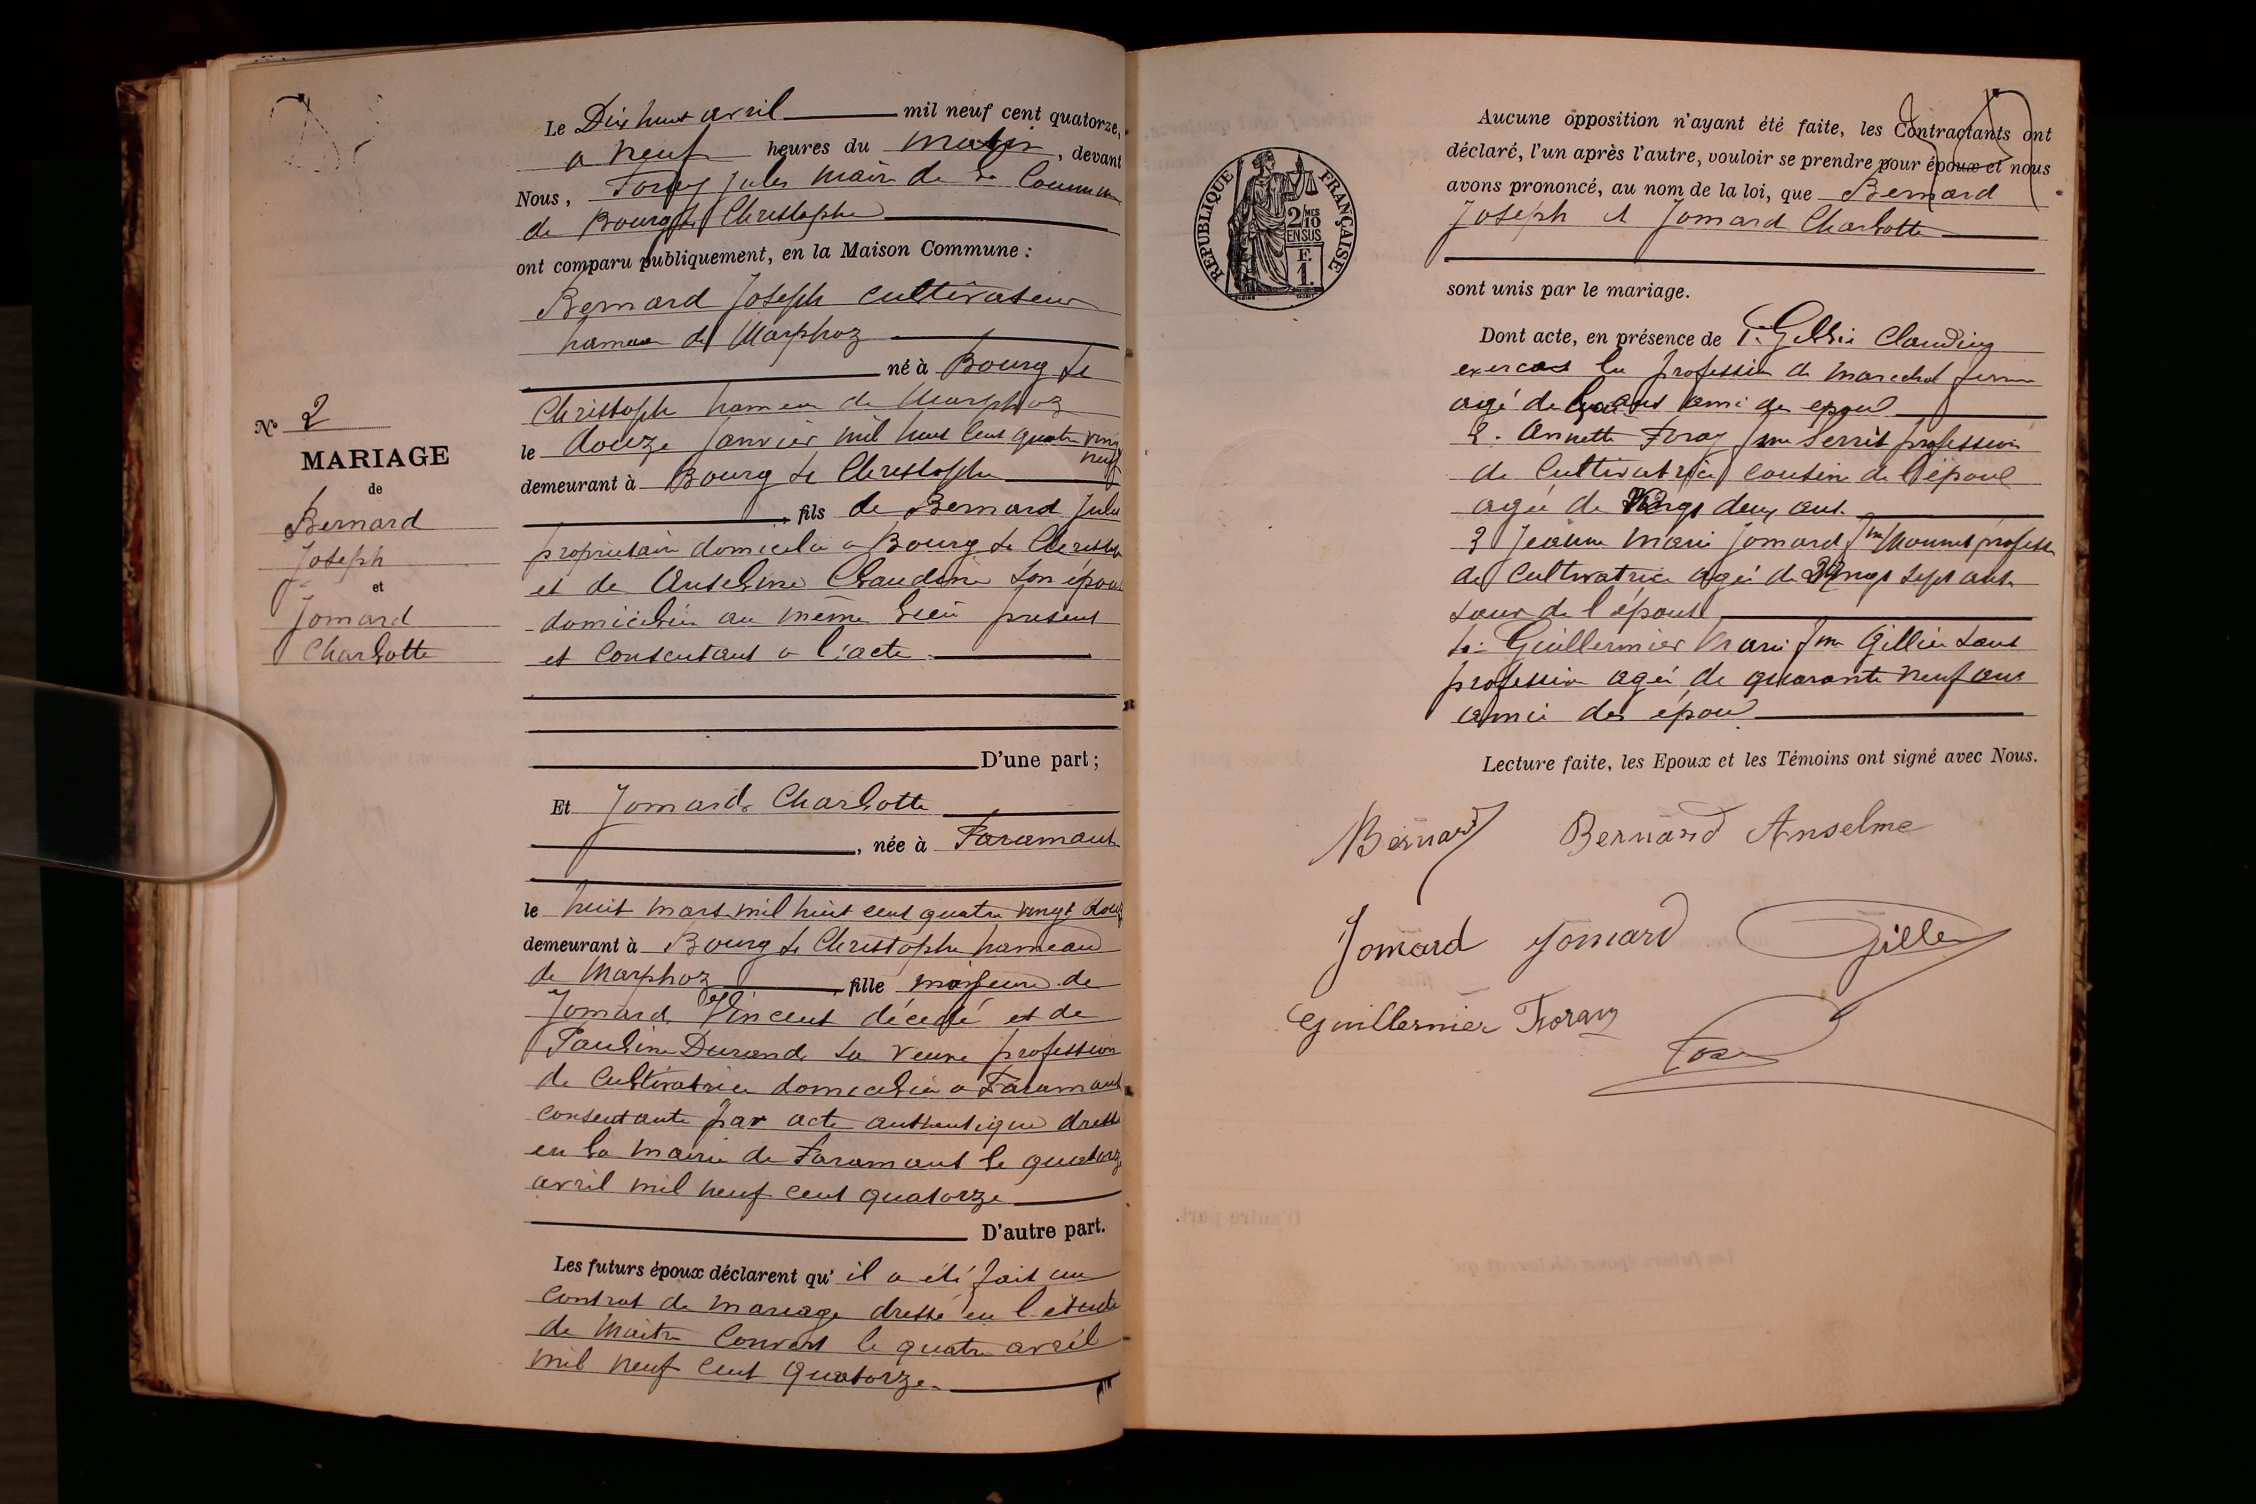 Le Dix huit avril mil neuf cent quatorze,
a neuf heures du matin, devant
Nous, Foray Jules maire de la Commune
de Bourg St Christophe
ont comparu publiquement, en la Maison Commune :
Bernard Joseph cultivateur
hameau de Marphoz
né à Bourg St
Christophe hameau de Marphoz
le douze janvier mil huit cent quatre vingt
neuf
demeurant à Bourg St Christophe
, fils de Bernard Jules
propriétaire domicilié a Bourg St Christophe
et de Anselme Claudine son épouse
domiciliée au même lieu présents
et consentants a l'acte
D'une part ;
N° 2
MARIAGE
de
Bernard
Joseph
et
Jomard
Charlotte
Et Jomard Charlotte
, née à Faramans
le huit mars mil huit cent quatre vingt douze
demeurant à Bourg St Christophe hameau
de Marphoz, fille majeure de
Jomard Vincent décédé et de
Pauline Durand sa veuve profession
de cultivatrice domiciliée a Faramans
consentante par acte authentique dressé
en la mairie de Faramans le quatorze
avril mil neuf cent quatorze
D'autre part.
Les futurs époux déclarent qu'il a été fait un
contrat de mariage dressé en l'étude
de Maitre Convert le quatre avril
mil neuf cent quatorze.
RÉPUBLIQUE FRANÇAISE
2/10 MES
EN SUS
F.
1.
Aucune opposition n'ayant été faite, les Contractants ont
déclaré, l'un après l'autre, vouloir se prendre pour époux et nous
avons prononcé, au nom de la loi, que Bernard
Joseph et Jomard Charlotte
sont unis par le mariage.
Dont acte, en présence de 1. Claudius
exercant la profession de marechal
agé de ans ami des epoux
2. Annette Foray profession
de cultivatrice cousine de l'époux
agée de vingt deux ans
3 Jeanne Marie Jomard fme Monnet profession
de cultivatrice agée de vingt sept ans
sœur de l'épouse
Guillermier Marie fme Gillier sans
profession agée de quarante neuf ans
amie des époux
Lecture faite, les Epoux et les Témoins ont signé avec Nous.
Bernard Bernard Anselme
Jomard Jomard
Guillermier Foray